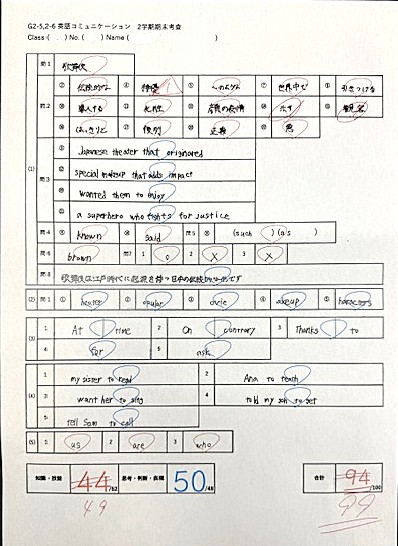 G2-5,2-6 英語コミュニケーション 2学期期末考査
Class ( . ) No. ( ) Name ( )
(1) 問1 歌舞伎
問2 ② 伝統的な 俳優 このような ⑦ 世界中で 引きつける
導入する 化粧 たす 観客
はっきりと 役割 正義 悪
問3 Japanese theater that originated
special makeup that adds impact
wanted them to enjoy
a superhero who fights for justice
問4 known said 問5 (such ) (as )
問6 brown 問7 1 ○ 2 × 3 ×
問8 歌舞伎は江戸時代に起源を持つ日本の伝統的
(2) 問1 ① heater ② opular ③ ovie ④ akeup ⑤
(3) 1 At time 2 On contrary 3 Thanks to
4 for 5 ask
(4) 1 my sister to read 2 Ana to teach
3 want her to sing 4 told my son to get
5 tell Sam to call
(5) 1 us 2 are 3 who
知識・技能 44/52 思考・判断・表現 50/48 合計 94/100
49 99